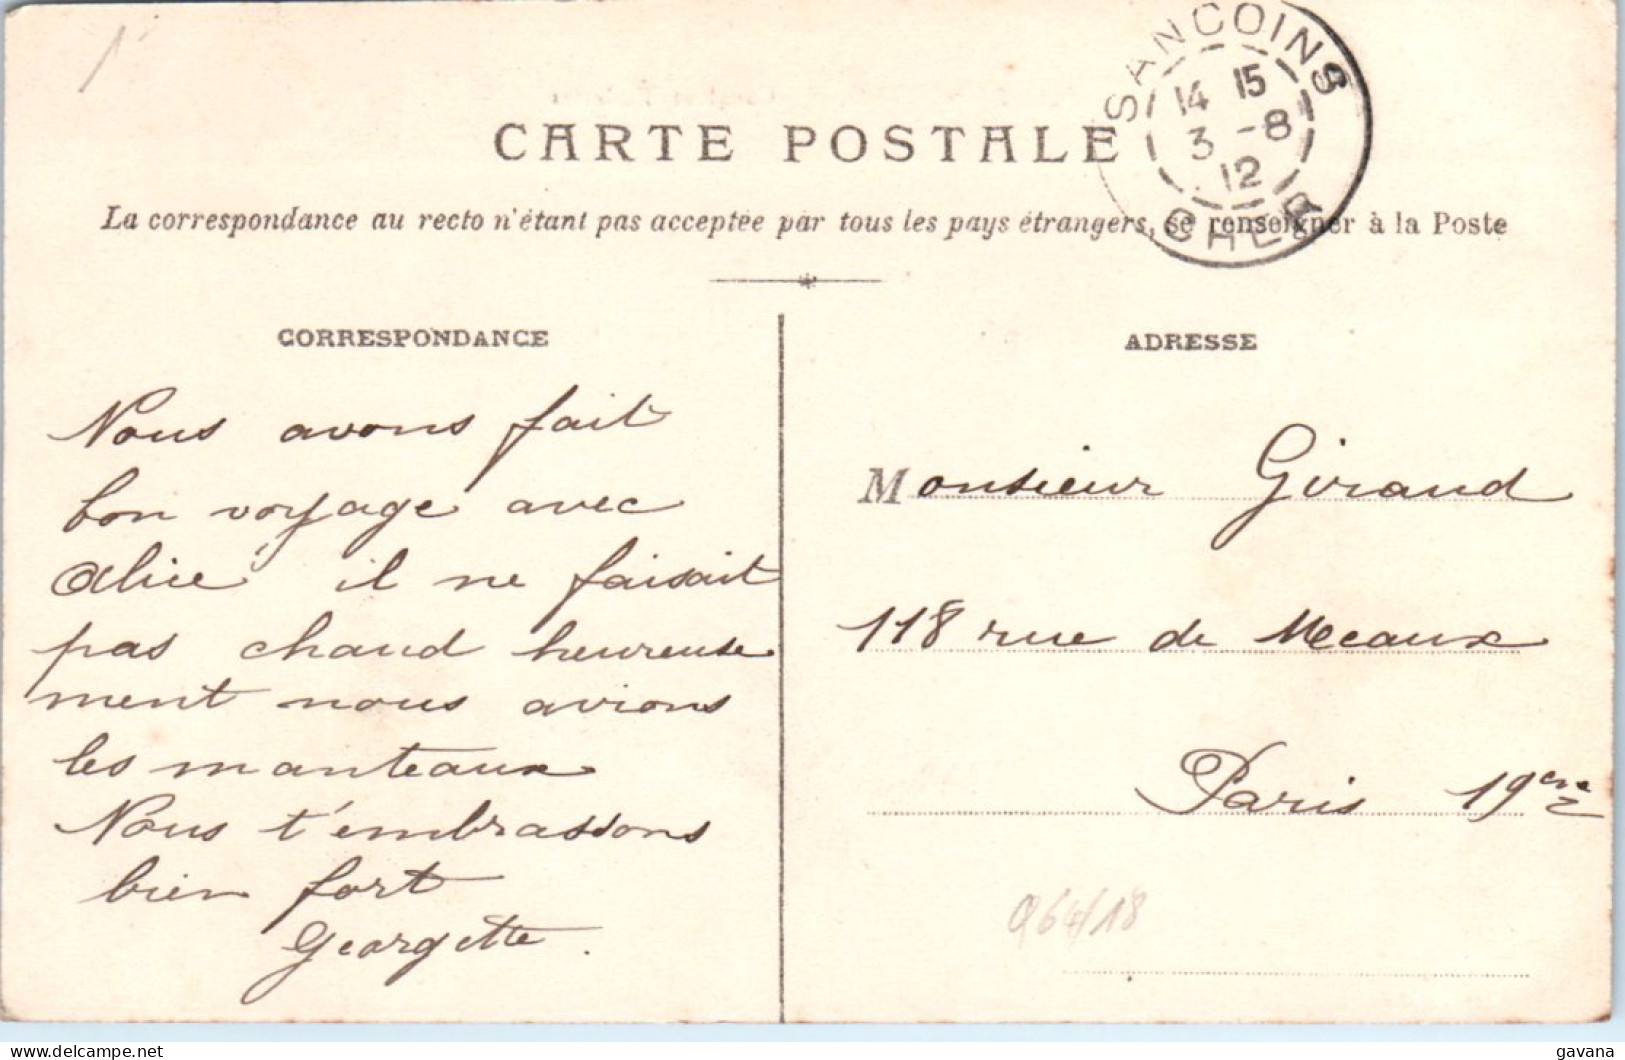 1
SANCOINS
14 15
3 -8
12
CHER
CARTE POSTALE
La correspondance au recto n'étant pas acceptée par tous les pays étrangers, se renseigner à la Poste
CORRESPONDANCE
Nous avons fait
bon voyage avec
Alice il ne faisait
pas chaud heureuse
ment nous avions
les manteaux
Nous t'embrassons
bien fort
Georgette.
ADRESSE
Monsieur Giraud
118 rue de Meaux
Paris 19eme
Q64/18
delcampe.net
gavana